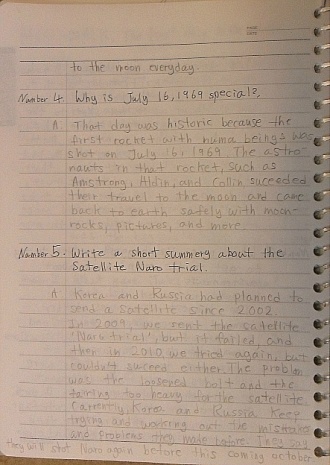 to the moon everyday.
Number 4. Why is July 16, 1969 special?
A. That day was historic because the
first rocket with huma beings was
shot on July 16, 1969. The astro-
nauts in that rocket, such as
Amstrong, Aldin, and Collin succeeded
their travel to the moon and came
back to earth safely with moon-
rocks, pictures, and more.
Number 5. Write a short summery about the
Satellite Naro trial.
A. Korea and Russia had planned to
send a satellite since 2002.
In 2009, we sent the satellite
'Naro trial', but it failed, and
then in 2010, we tried again, but
couldn't succeed either. The problem
was the loosened bolt and the
fairing too heavy for the satellite.
Currently, Korea and Russia keep
trying and working out the mistakes
and problems they made before. They say
they will shot Naro again before this coming october.